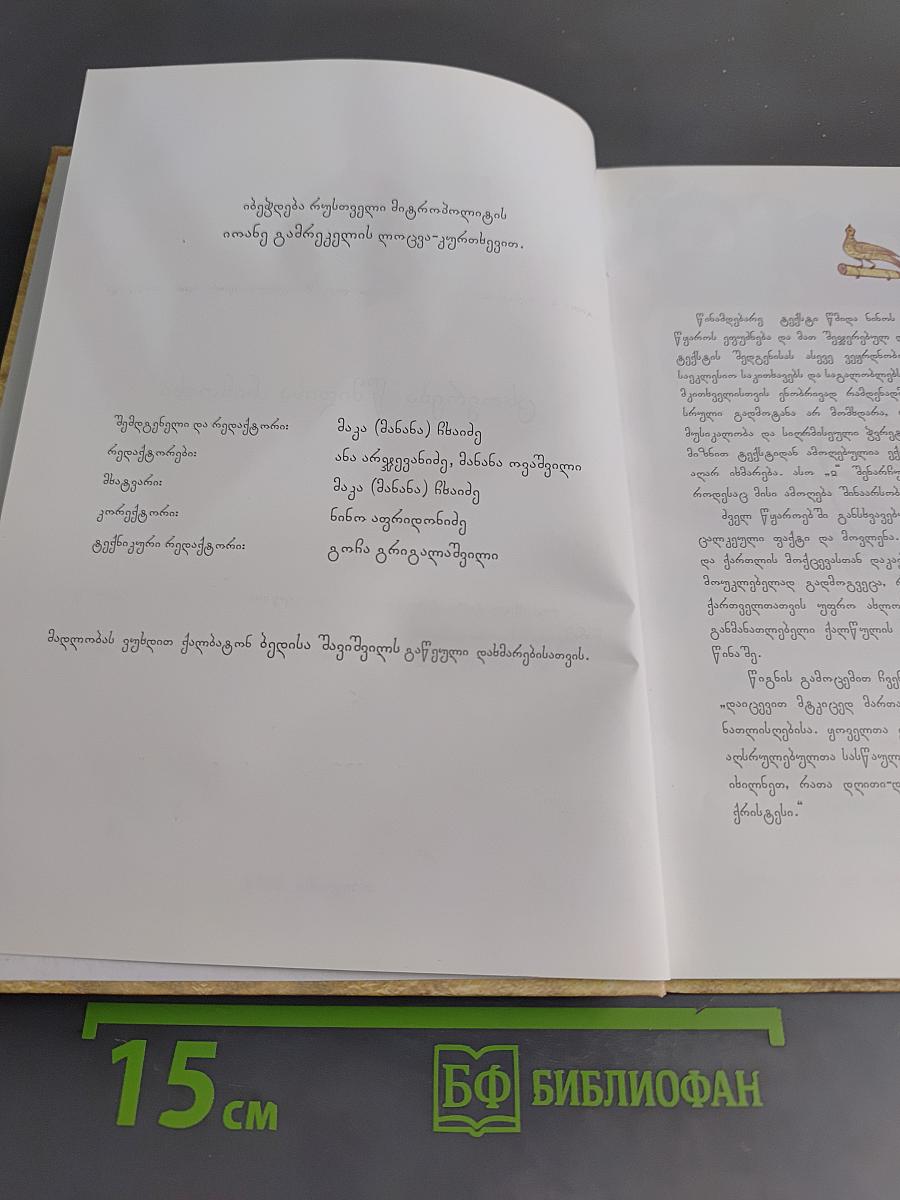 იბეჭდება რუსთველი მიტროპოლიტის
იოანე გამრეკელის ლოცვა-კურთხევით.
შემდგენელი და რედაქტორი: მაკა (მანანა) ჩხაიძე
რედაქტორები: ანა არჯევანიძე, მანანა ოვაშვილი
მხატვარი: მაკა (მანანა) ჩხაიძე
კორექტორი: ნინო აფრიდონიძე
ტექნიკური რედაქტორი: გოჩა გრიგალაშვილი
მადლობას ვუხდით ქალბატონ ბედისა შავიშვილს გაწეული დახმარებისათვის.
წინამდებარე ტექსტი წმიდა ნინოს
წყაროს ეფუძნება და მათ შეჯერებულ
ტექსტის შედგენისას ასევე
საეკლესიო საკითხავებს და
მკითხველისთვის ენობრივად
სრული გადმოტანა არ მომხდარა,
მუსიკალობა და სიღრმისეული
მიზნით ტექსტიდან ამოღებულია
აღარ იხმარება. ასო
როდესაც მისი ამოღება
ძველ წყაროებში
ცალკეული ფაქტი და მოვლენა.
და ქართლის მოქცევასთან
მოუკლებელად გადმოგვეცა,
ქართველთათვის უფრო
განმანათლებელი ქალწულის
წინაშე.
წიგნის გამოცემით
„დაიცევით მტკიცედ
ნათლისღებისა. ყოველთა
აღსრულებულთა
იხილნეთ, რათა
ქრისტესი.“
15 см
БФ БИБЛИОФАН